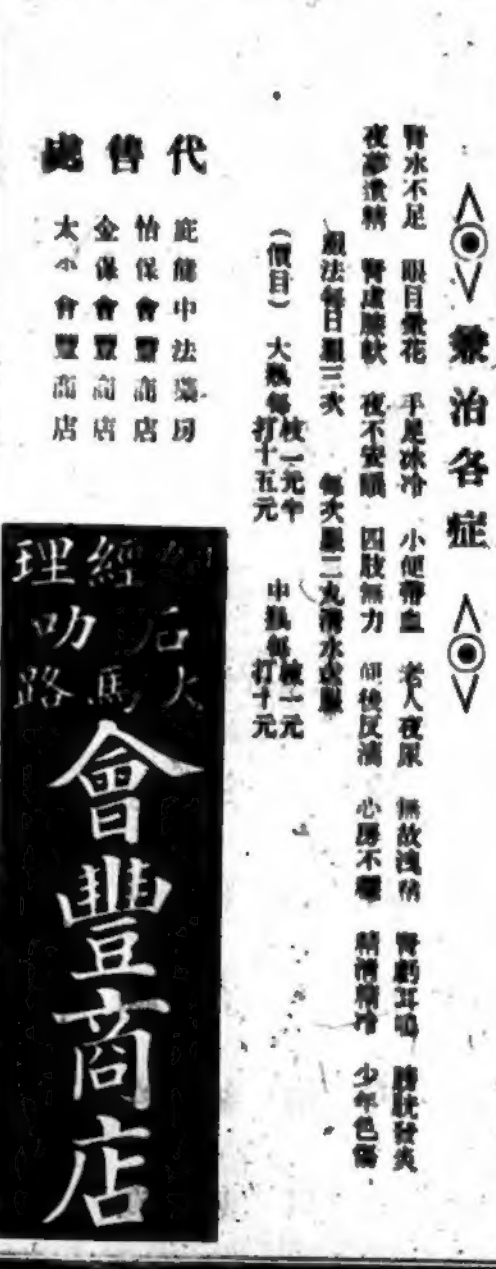 兼治各症
腎水不足 眼目暈花 手足冰冷 小便帶血 老人夜尿 無故洩精 腎虧耳鳴 膀胱發炎
夜夢遺精 腎虛腰軟 夜不安眠 四肢無力 心房不 精清精冷 少年色傷
服法每日服三次 每次服二丸清水送服
(價目) 大瓶每枝一元半 打十五元 中瓶每枝一元 打十元
代售處
庇能中法藥房
怡保會豐商店
金保會豐商店
太小會豐商店
經理
石叻
大馬路
會豐商店